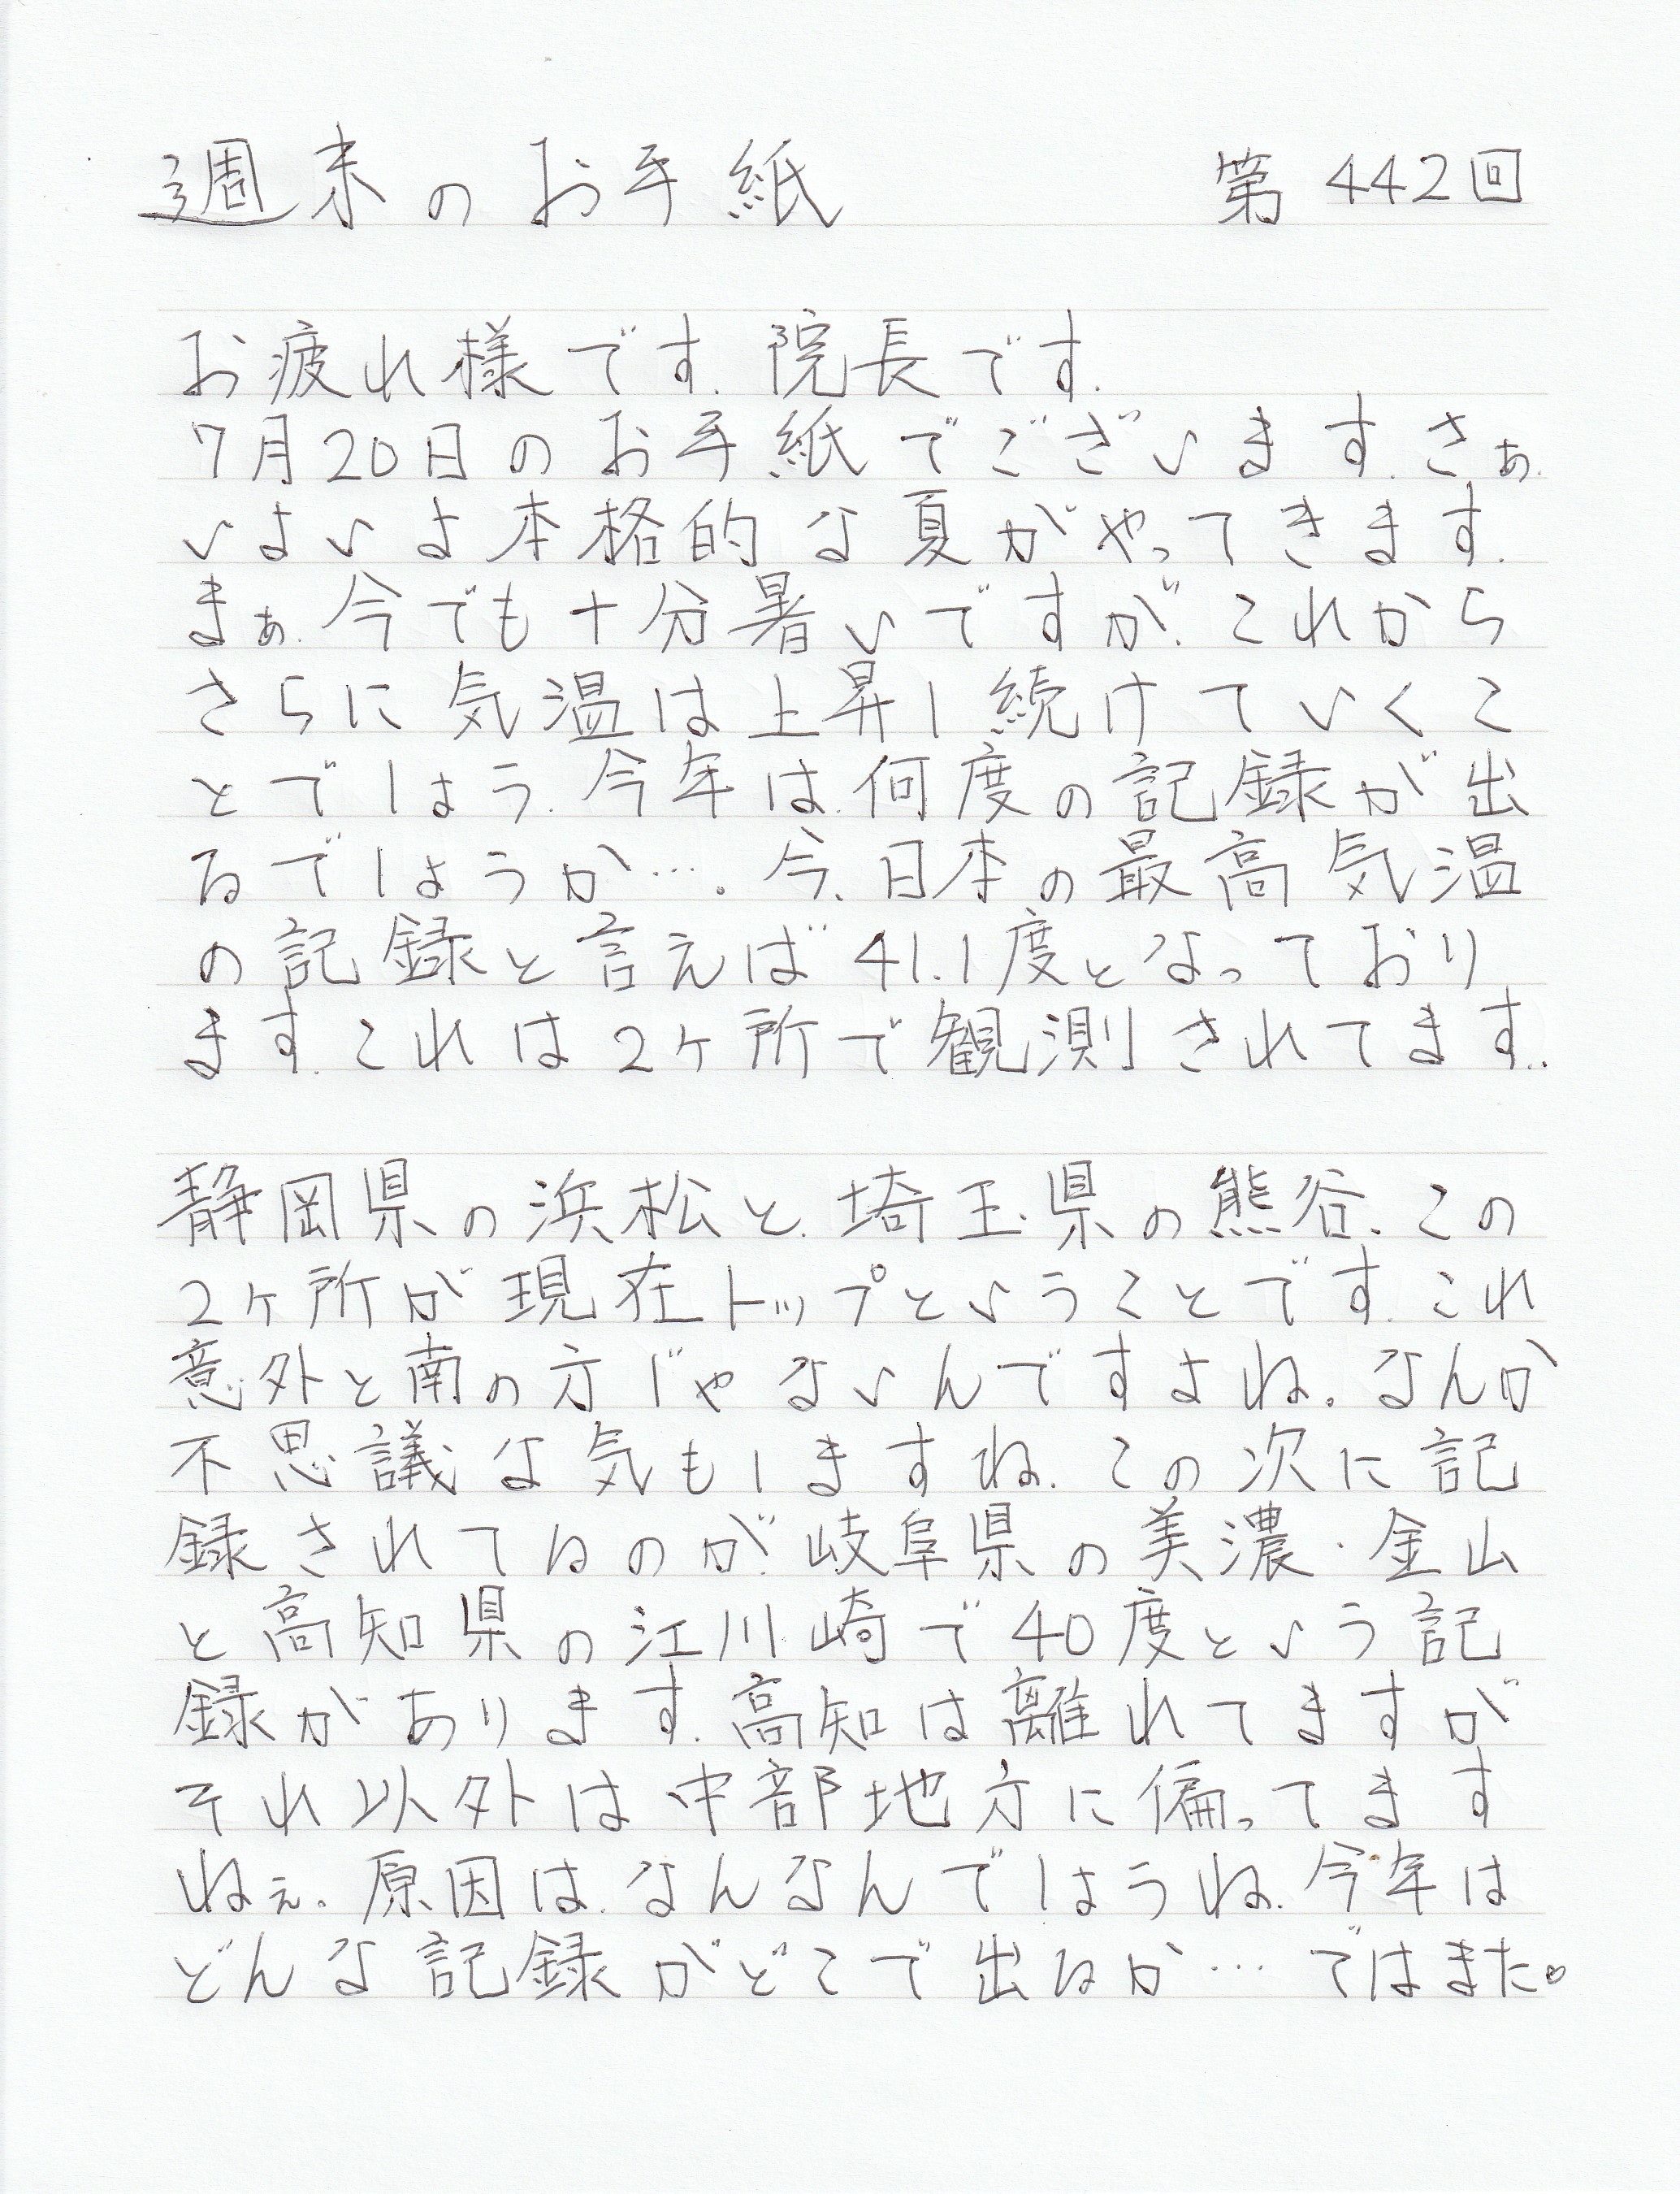 週末のお手紙 第442回
お疲れ様です.院長です.
7月20日のお手紙でございます.さぁ.
いよいよ本格的な夏がやってきます.
まぁ.今でも十分暑いですが.これから
さらに気温は上昇し続けていくこ
とでしょう.今年は.何度の記録が出
るでしょうか….今、日本の最高気温
の記録と言えば41.1度となっており
ます.これは2ヶ所で観測されてます..
静岡県の浜松と.埼玉県の熊谷.この
2ヶ所が現在トップということです.これ
意外と南の方じゃないんですよね。なんか
不思議な気もしますね.この次に記
録されてるのが.岐阜県の美濃・金山
と高知県の江川崎で40度という記
録があります.高知は離れてますが
それ以外は中部地方に偏ってます
ねぇ。原因は.なんなんでしょうね.今年は
どんな記録がどこで出るか…ではまた。